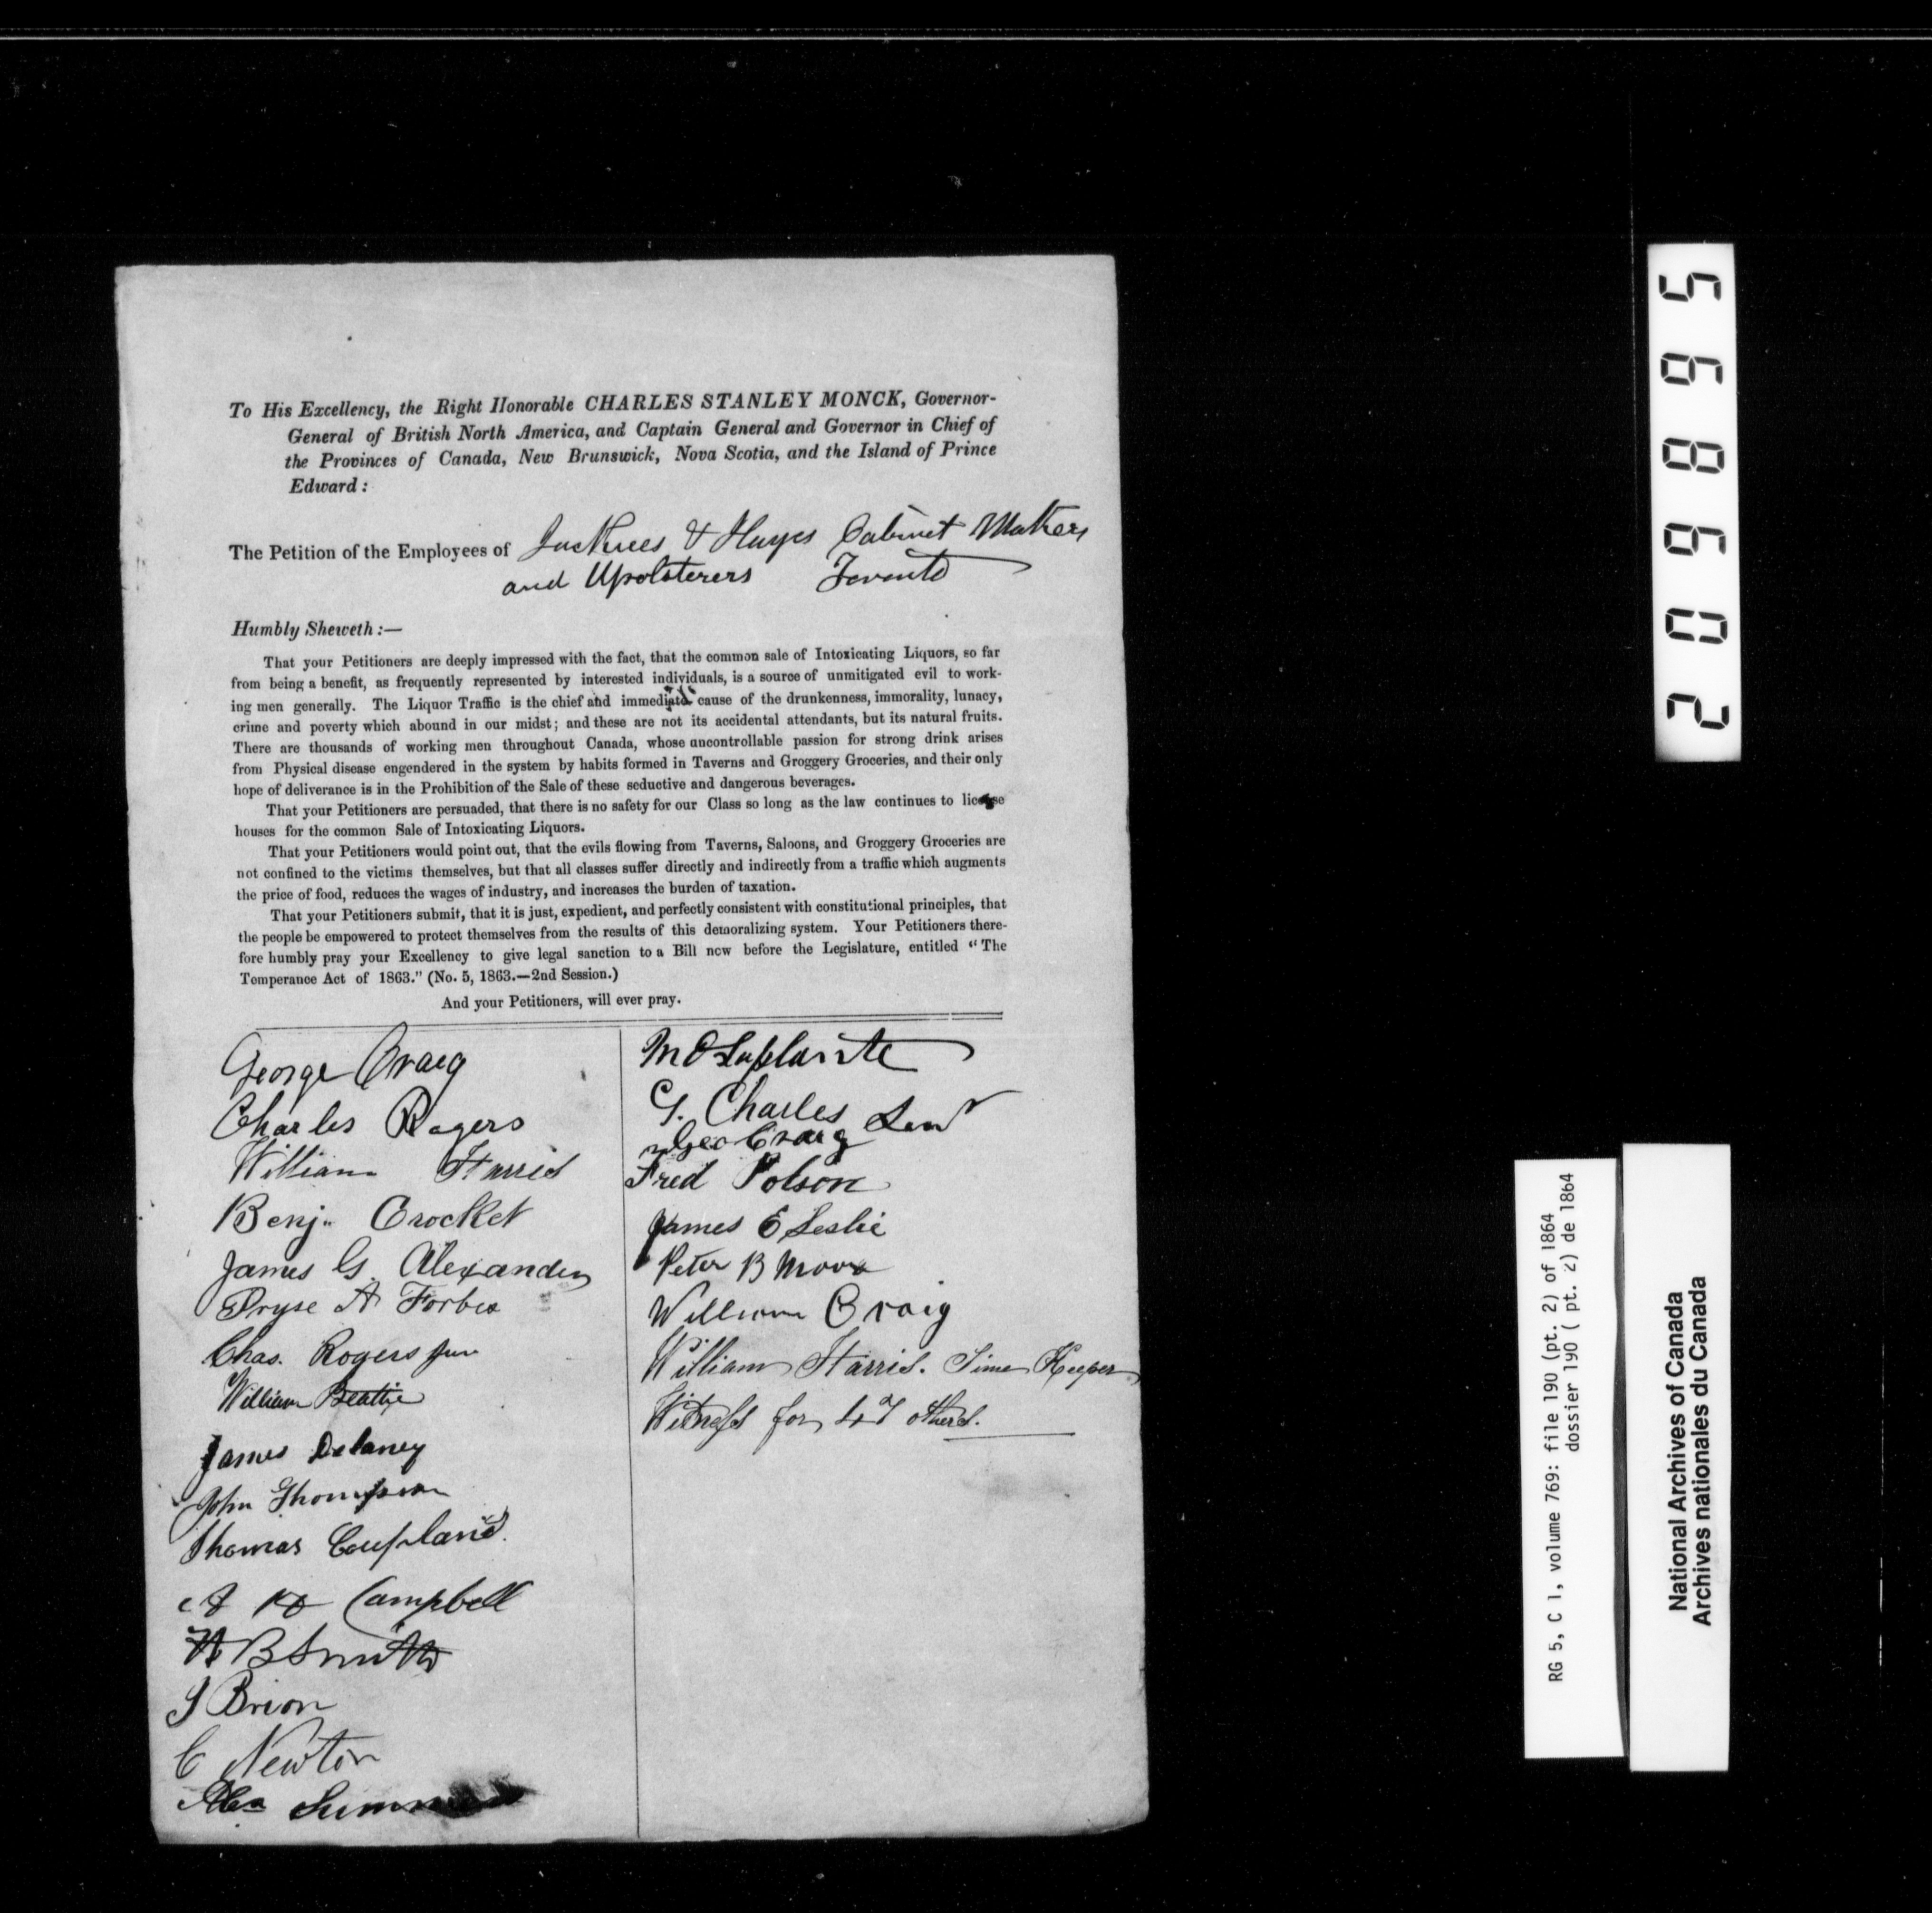 To His Excellency, the Right Honorable CHARLES STANLEY MONCK, Governor-
General of British North America, and Captain General and Governor in Chief of
the Provinces of Canada, New Brunswick, Nova Scotia, and the Island of Prince
Edward :
The Petition of the Employees of Jacques & Hayes Cabinet Makers
and Upolsterers Toronto
Humbly Sheweth :—
That your Petitioners are deeply impressed with the fact, that the common sale of Intoxicating Liquors, so far
from being a benefit, as frequently represented by interested individuals, is a source of unmitigated evil to work-
ing men generally. The Liquor Traffic is the chief and immediate cause of the drunkenness, immorality, lunacy,
crime and poverty which abound in our midst; and these are not its accidental attendants, but its natural fruits.
There are thousands of working men throughout Canada, whose uncontrollable passion for strong drink arises
from Physical disease engendered in the system by habits formed in Taverns and Groggery Groceries, and their only
hope of deliverance is in the Prohibition of the Sale of these seductive and dangerous beverages.
That your Petitioners are persuaded, that there is no safety for our Class so long as the law continues to license
houses for the common Sale of Intoxicating Liquors.
That your Petitioners would point out, that the evils flowing from Taverns, Saloons, and Groggery Groceries are
not confined to the victims themselves, but that all classes suffer directly and indirectly from a traffic which augments
the price of food, reduces the wages of industry, and increases the burden of taxation.
That your Petitioners submit, that it is just, expedient, and perfectly consistent with constitutional principles, that
the people be empowered to protect themselves from the results of this demoralizing system. Your Petitioners there-
fore humbly pray your Excellency to give legal sanction to a Bill now before the Legislature, entitled "The
Temperance Act of 1863." (No. 5, 1863.—2nd Session.)
And your Petitioners, will ever pray.
George Craig
Charles Rogers
William Harris
Benj. Crocket
James G. Alexander
Pryse A Forbes
Chas. Rogers jun
William Beattie
James Delaney
John Thompson
Thomas Coupland
Campbell
B Smith
J Brion
C Newton
Alex
M O Laplante
G. Charles Senr
Geo Craig
Fred Polson
James E Leslie
Peter B Moore
William Craig
William Harris. Time Keeper
Witness for 47 others.
20689 5
RG 5, C 1, volume 769: file 190 (pt. 2) of 1864
dossier 190 ( pt. 2) de 1864
National Archives of Canada
Archives nationales du Canada